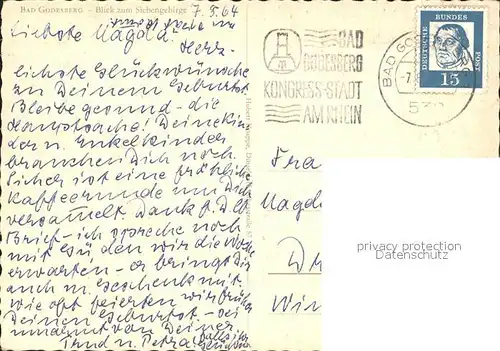 BAD GODESBERG – Blick zum Siebengebirge
7.3.64
Liebste Magda!
Herz-
lichste Glückwünsche
zu Deinem Geburtstag
Bleibe gesund - die
Hauptsache! Deine Kin
der u. Enkelkinder
brauchen Dich noch
Sicher ist eine fröhliche
Kaffeerunde um Dich
versammelt. Dank f. D. lb
Brief - ich spreche noch
mit den wir die Woche
erwarten - er bringt Dir
auch m. Geschenk mit.
Wie oft feierten wir früher
Deinen Geburtstag - sei
umarmt von Deiner
Trud u. Petra
BAD
GODESBERG
KONGRESS-STADT
AM RHEIN
BAD GOD
532
DEUTSCHE BUNDESPOST
15
Frau
Magda
privacy protection
Datenschutz